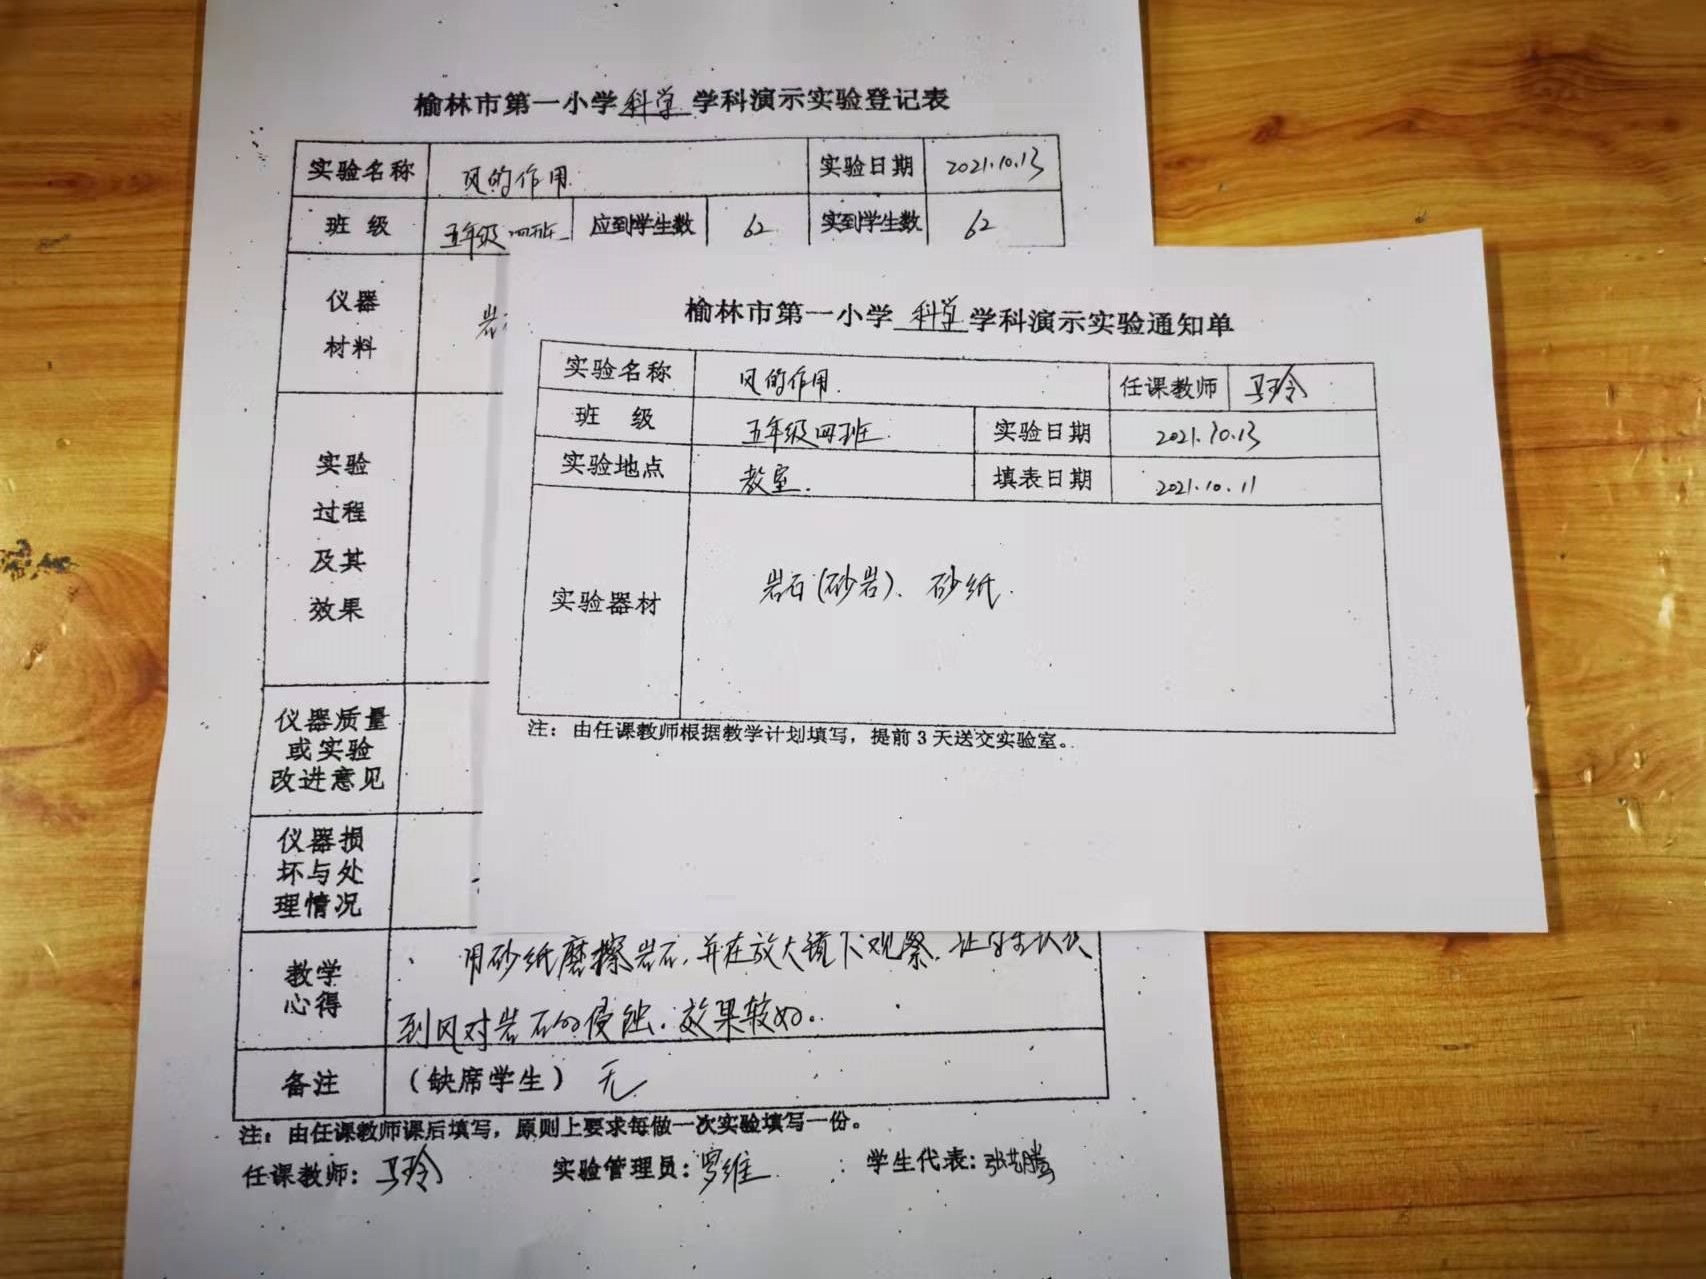 榆林市第一小学科学学科演示实验登记表
实验名称 风的作用 实验日期 2021.10.13
班 级 五年级四班 应到学生数 62 实到学生数 62
仪器
材料
岩
实验
过程
及其
效果
仪器质量
或实验
改进意见
仪器损
坏与处
理情况
教学
心得
用砂纸磨擦岩石,并在放大镜下观察,让学生认识
到风对岩石的侵蚀.效果较好.
备注 (缺席学生) 无
注:由任课教师课后填写,原则上要求每做一次实验填写一份。
任课教师:马玲 实验管理员:罗维 学生代表:张
榆林市第一小学科学学科演示实验通知单
实验名称 风的作用. 任课教师 马玲
班 级 五年级四班. 实验日期 2021.10.13
实验地点 教室. 填表日期 2021.10.11
实验器材 岩石(砂岩)、砂纸.
注:由任课教师根据教学计划填写,提前3天送交实验室。